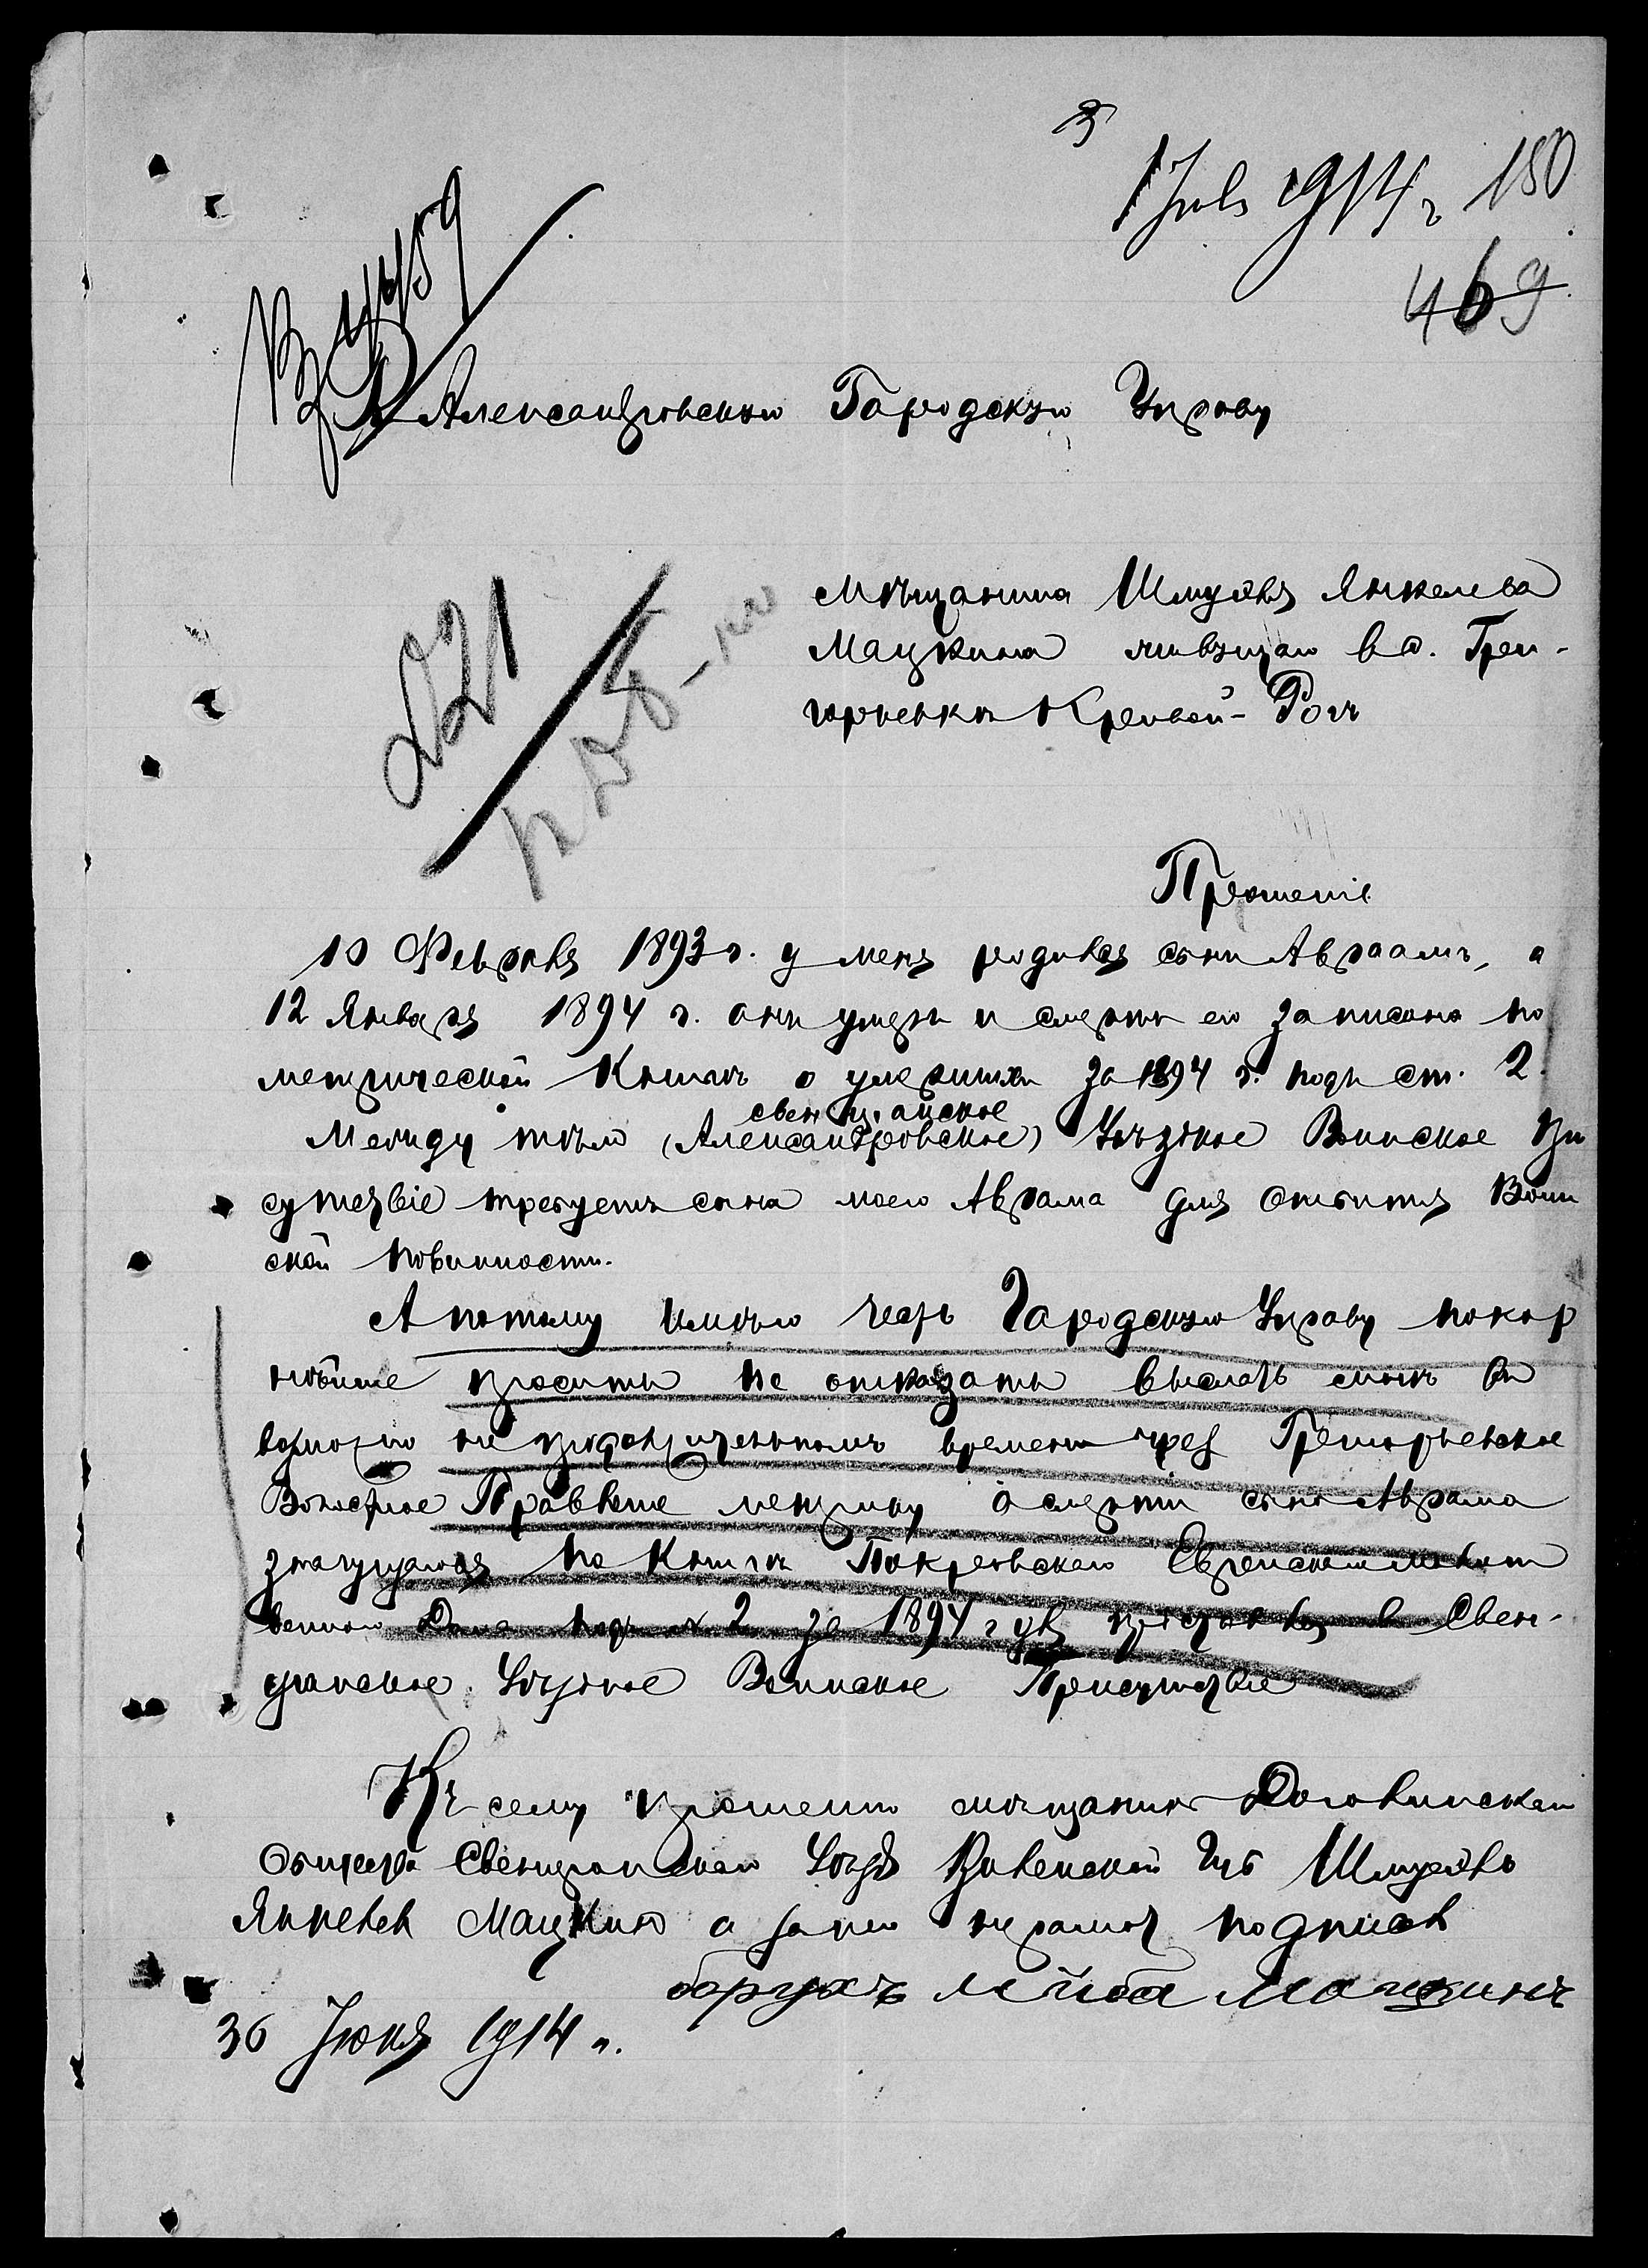 3
1 Июля 1914 г 180
469
В Александровскую Городскую Управу
Мѣщанина Шмуйлы Янкелева
Мацкина живущаго в д. Гри-
горьевки Кривой-Рогъ
221
Прошеніе
10 Февраля 1893 г. у меня родился сынъ Авраамъ, а
12 Января 1894 г. онъ умеръ и смерть его записана по
метрической Книгѣ о умершихъ за 1894 г. подъ ст. 2.
свенцянское
Между тѣмъ (Александровское) Уѣздное Воинское При
сутствіе требуетъ сына моего Аврама для Отбытія Воин
ской повинности.
А потому имѣю честь Городскую Управу покор
нѣйше просить не отказать выслать мнѣ въ
возможно непродолжительномъ времени чрез Григорьевское
Волостное Правленіе метрику о смерти сына Аврама
значущагося по Книгѣ Покровскаго Еврейскаго молит
веннаго Дома подъ № 2 за 1894 г для представл в Свен-
цянское Уѣздное Воинское Присутствіе
Къ сему прошенію мѣщанинъ Долгиновскаго
Общества Свенцянскаго Уѣзда Виленской Губ Шмуйло
Янкелев Мацкин а за него неграмот подписал
борухъ лейба мацкинъ
30 Июня 1914 г.